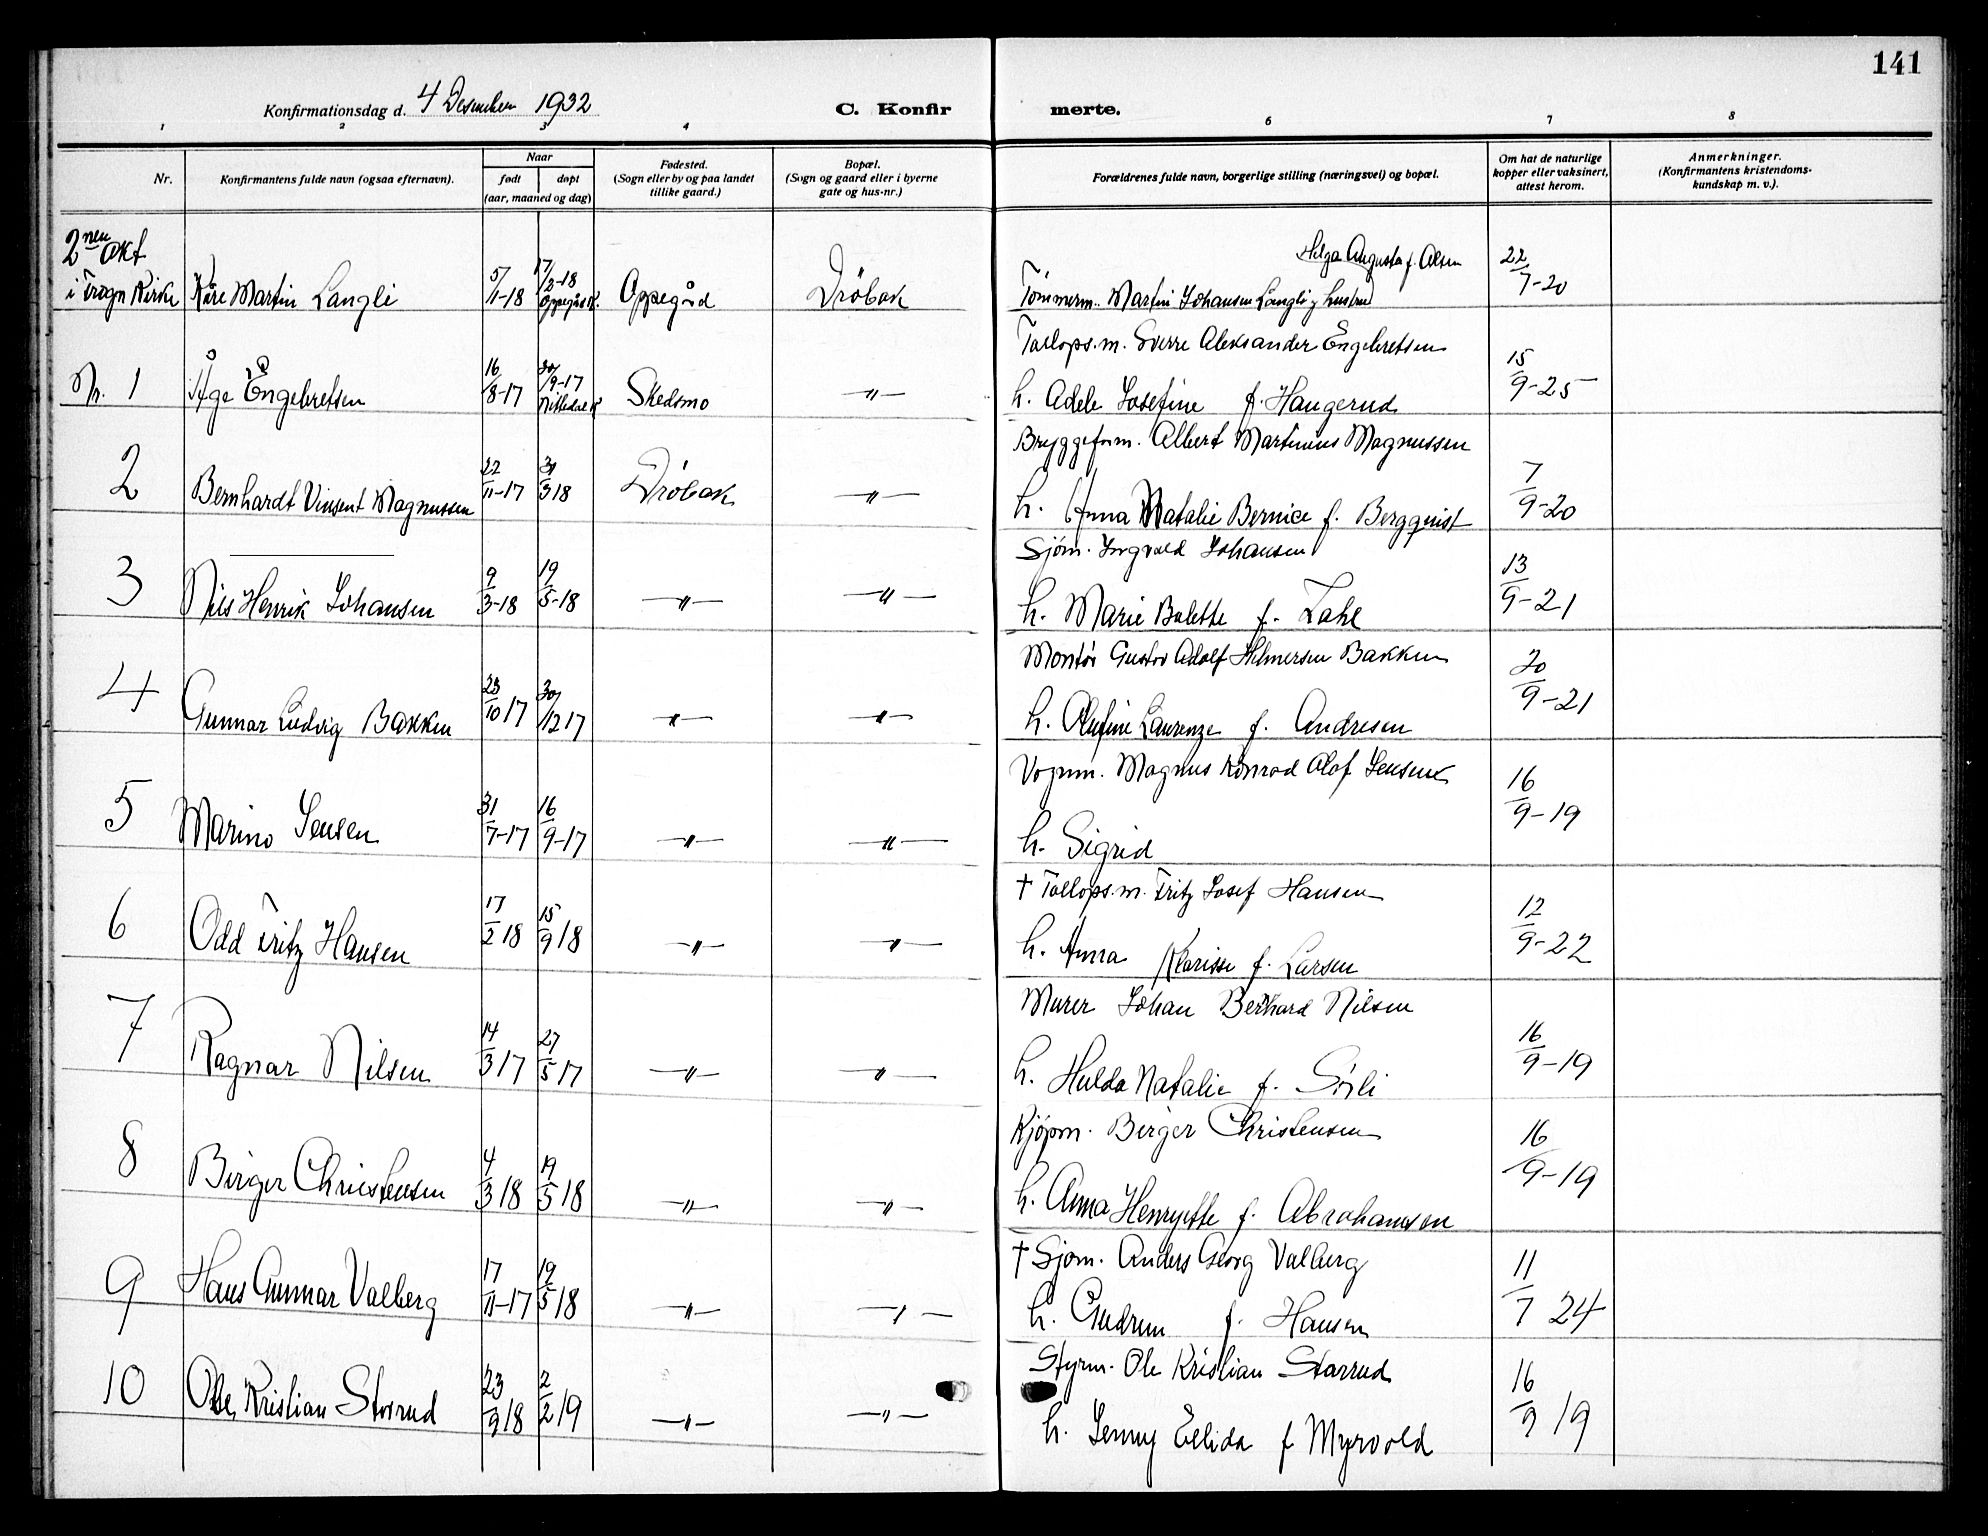 141
Konfirmationsdag d. 4 Desember 1932
C. Konfirmerte.
1 2 3 4 6 7 8
Nr.
Konfirmantens fulde navn (ogsaa efternavn).
Naar
født døpt
(aar, maaned og dag)
Fødested.
(Sogn eller by og paa landet
tillike gaard.)
Bopæl.
(Sogn og gaard eller i byerne
gate og hus-nr.)
Forældrenes fulde navn, borgerlige stilling (næringsvei) og bopæl.
Om hat de naturlige
kopper eller vaksinert,
attest herom.
Anmerkninger.
(Konfirmantens kristendoms-
kundskap m. v.).
2nen Okt
i Frogn Kirke Kåre Martin Langli 5/11-18 17/2-18 Oppegård K Oppegård Dröbak
Helga Augusta f. Olsen
Tömmerm. Martin Johansen Langli og hustru 22/7-20
Nr. 1 Åge Engebretsen 16/8-17 30/9-17 Nittedal K Skedsmo —"—
Tollops.m. Sverre Aleksander Engebretsen
h. Adele Josefine f. Haugerud 15/9-25
2 Bernhardt Vinsent Magnussen 22/11-17 31/3 18 Dröbak —"—
Bryggeform. Albert Martinius Magnussen
h. Anna Natalie Bernice f. Bergquist 7/9-20
3 Nils Henrik Johansen 9/3-18 19/5-18 —"— —"—
Sjöm. Ingvald Johansen
h. Marie Bolette f. Zahl 13/9-21
4 Gunnar Ludvig Bakken 23/10 17 30/12 17 —"— —"—
Montör Gustav Adolf Hilmersen Bakken
h. Olufine Laurenze f. Andresen 20/9-21
5 Marino Jensen 31/7-17 16/9-17 —"— —"—
Vognm. Magnus Konrad Olof Jensen
h. Sigrid 16/9-19
6 Odd Fritz Hansen 17/2 18 15/9 18 —"— —"—
† Tollops.m. Fritz Josef Hansen
h. Anna Klarisse f. Larsen 12/9-22
7 Ragnar Nilsen 14/3 17 27/5 17 —"— —"—
Murer Johan Bernhard Nilsen
h. Hulda Natalie f. Sörli 16/9-19
8 Birger Christensen 4/3 18 19/5 18 —"— —"—
Kjöpm. Birger Christensen
h. Anna Henryette f. Abrahamsen 16/9-19
9 Hans Gunnar Valberg 17/11-17 19/5 18 —"— —"—
† Sjöm. Anders Georg Valberg
h. Gudrun f. Hansen 11/7 24
10 Ole Kristian Storrud 23/9 18 2/2 19 —"— —"—
Styrm. Ole Kristian Storrud
h. Jenny Elida f Myrvold 16/9 19